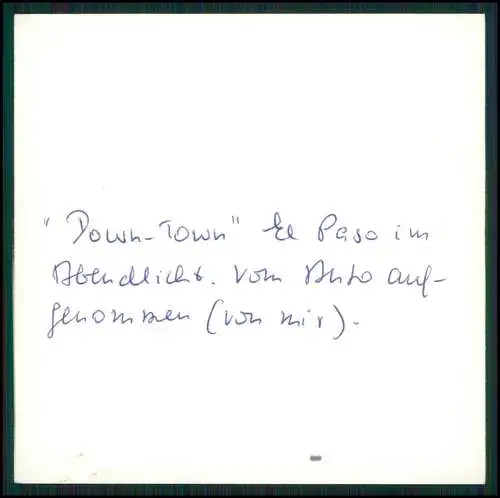 "Down-Town" El Paso im
Abendlicht. Vom Auto auf-
genommen (von mir).